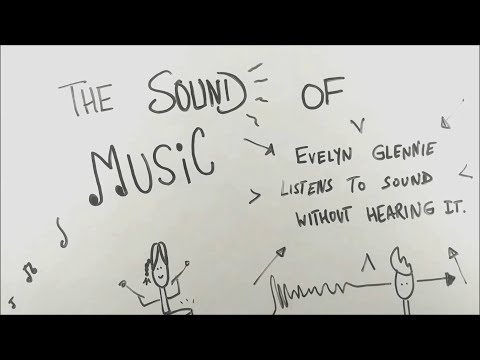 THE SOUND OF
MUSIC
EVELYN GLENNIE
LISTENS TO SOUND
WITHOUT HEARING IT.